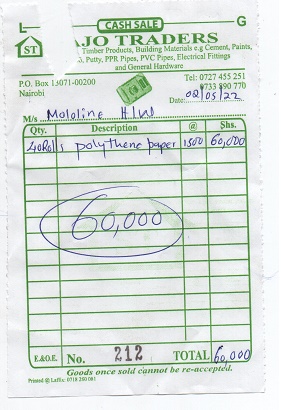 L G
CASH SALE
ST
AJO TRADERS
Timber Products, Building Materials e.g Cement, Paints,
Putty, PPR Pipes, PVC Pipes, Electrical Fittings
and General Hardware
P.O. Box 13071-00200
Nairobi
Tel: 0727 455 251
0733 890 770
Date: 02/05/22
M/s Mololine H/W
Qty. Description @ Shs.
40Rolls polythene paper 1500 60,000
60,000
E.&O.E. No. 212 TOTAL 60,000
Goods once sold cannot be re-accepted.
Printed @ Laffic: 0718 250 081